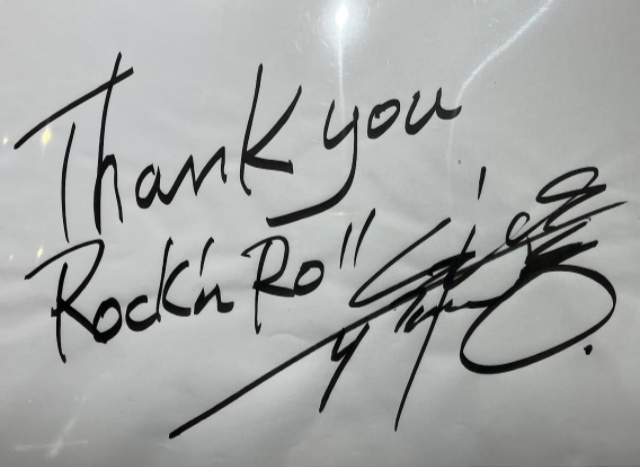 Thank you
Rock'n Roll